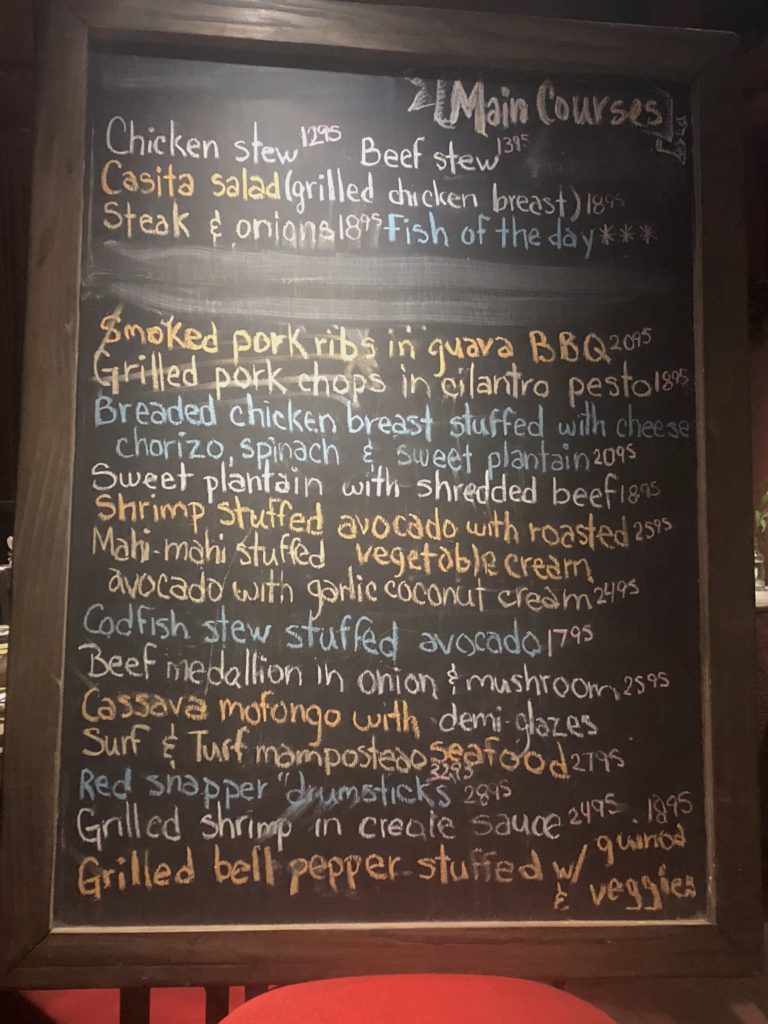 Main Courses
Chicken stew 1295 Beef stew 1395
Casita salad (grilled chicken breast) 1895
Steak & onions 1895 Fish of the day ***
Smoked pork ribs in guava BBQ 2095
Grilled pork chops in cilantro pesto 1895
Breaded chicken breast stuffed with cheese
chorizo, spinach & sweet plantain 2095
Sweet plantain with shredded beef 1895
Shrimp stuffed avocado with roasted 2595
Mahi-mahi stuffed vegetable cream
avocado with garlic coconut cream 2495
Codfish stew stuffed avocado 1795
Beef medallion in onion & mushroom 2595
Cassava mofongo with demi-glazes
Surf & Turf mamposteao seafood 2795
3295
Red snapper "drumsticks" 2895
Grilled shrimp in creole sauce 2495 . 1895
Grilled bell pepper stuffed w/ quinoa
& veggies